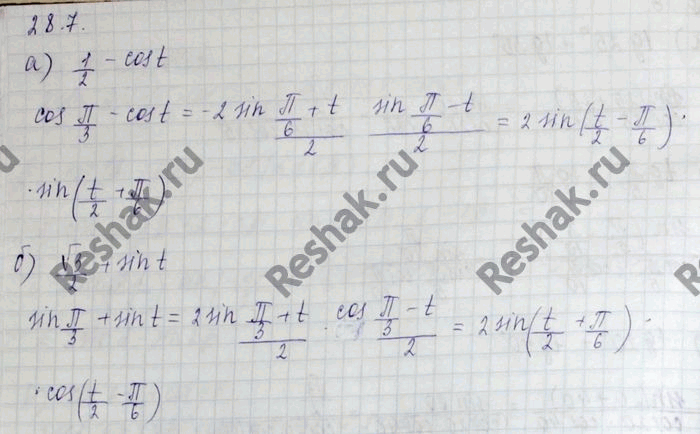 28.7.
а) 1/2 - cost
cos π/3 - cost = -2 sin (π/6 + t)/2 (sin π/6 - t)/2 = 2 sin(t/2 - π/6) ·
· sin(t/2 + π/6)
б) √3/2 + sint
sin π/3 + sint = 2 sin (π/3 + t)/2 · cos (π/3 - t)/2 = 2 sin(t/2 + π/6) ·
· cos(t/2 - π/6)
Reshak.ru
Reshak.ru
Reshak.ru